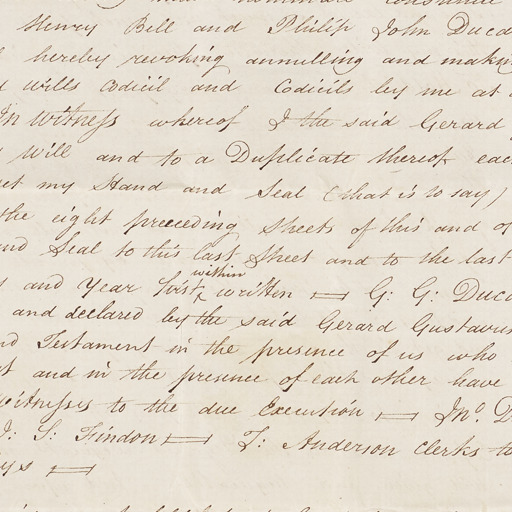 Henry Bell and Philip John Duca
hereby revoking annulling and makin
wills Codicil and Codicils by me at a
In Witness whereof I the said Gerard
Will and to a Duplicate thereof eac
set my Hand and Seal (that is to say)
the eight preceeding Sheets of this and of
and Seal to this last Sheet and to the last
and Year first within written G: G: Duca
and declared by the said Gerard Gustavus
nd Testament in the presence of us who
and in the presence of each other have
witnesses to the due Execution Jno. D
J: S: Findon T: Anderson Clerks to
ys